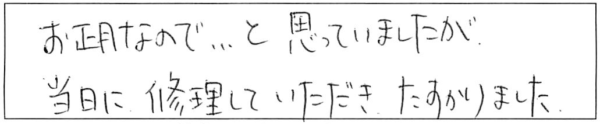 お正月なので…と思っていましたが
当日に修理していただき、たすかりました。